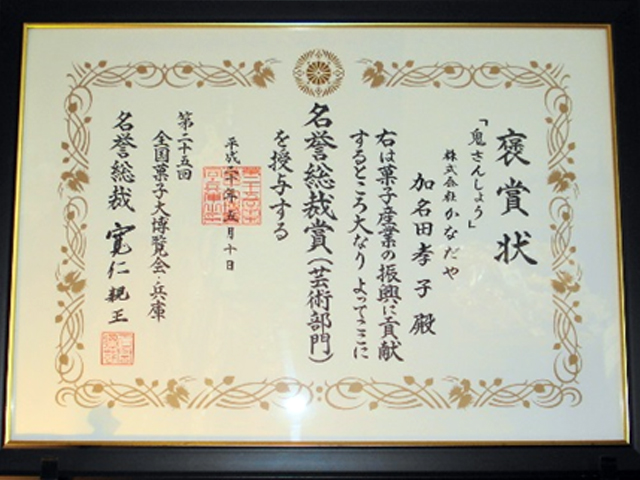 褒賞状
「鬼さんしょう」
株式会社かなだや
加名田孝子殿
右は菓子産業の振興に貢献
するところ大なりよってここに
名誉総裁賞(芸術部門)
を授与する
平成二十年五月十日
第二十五回
全国菓子大博覧会・兵庫
名誉総裁 寛仁親王